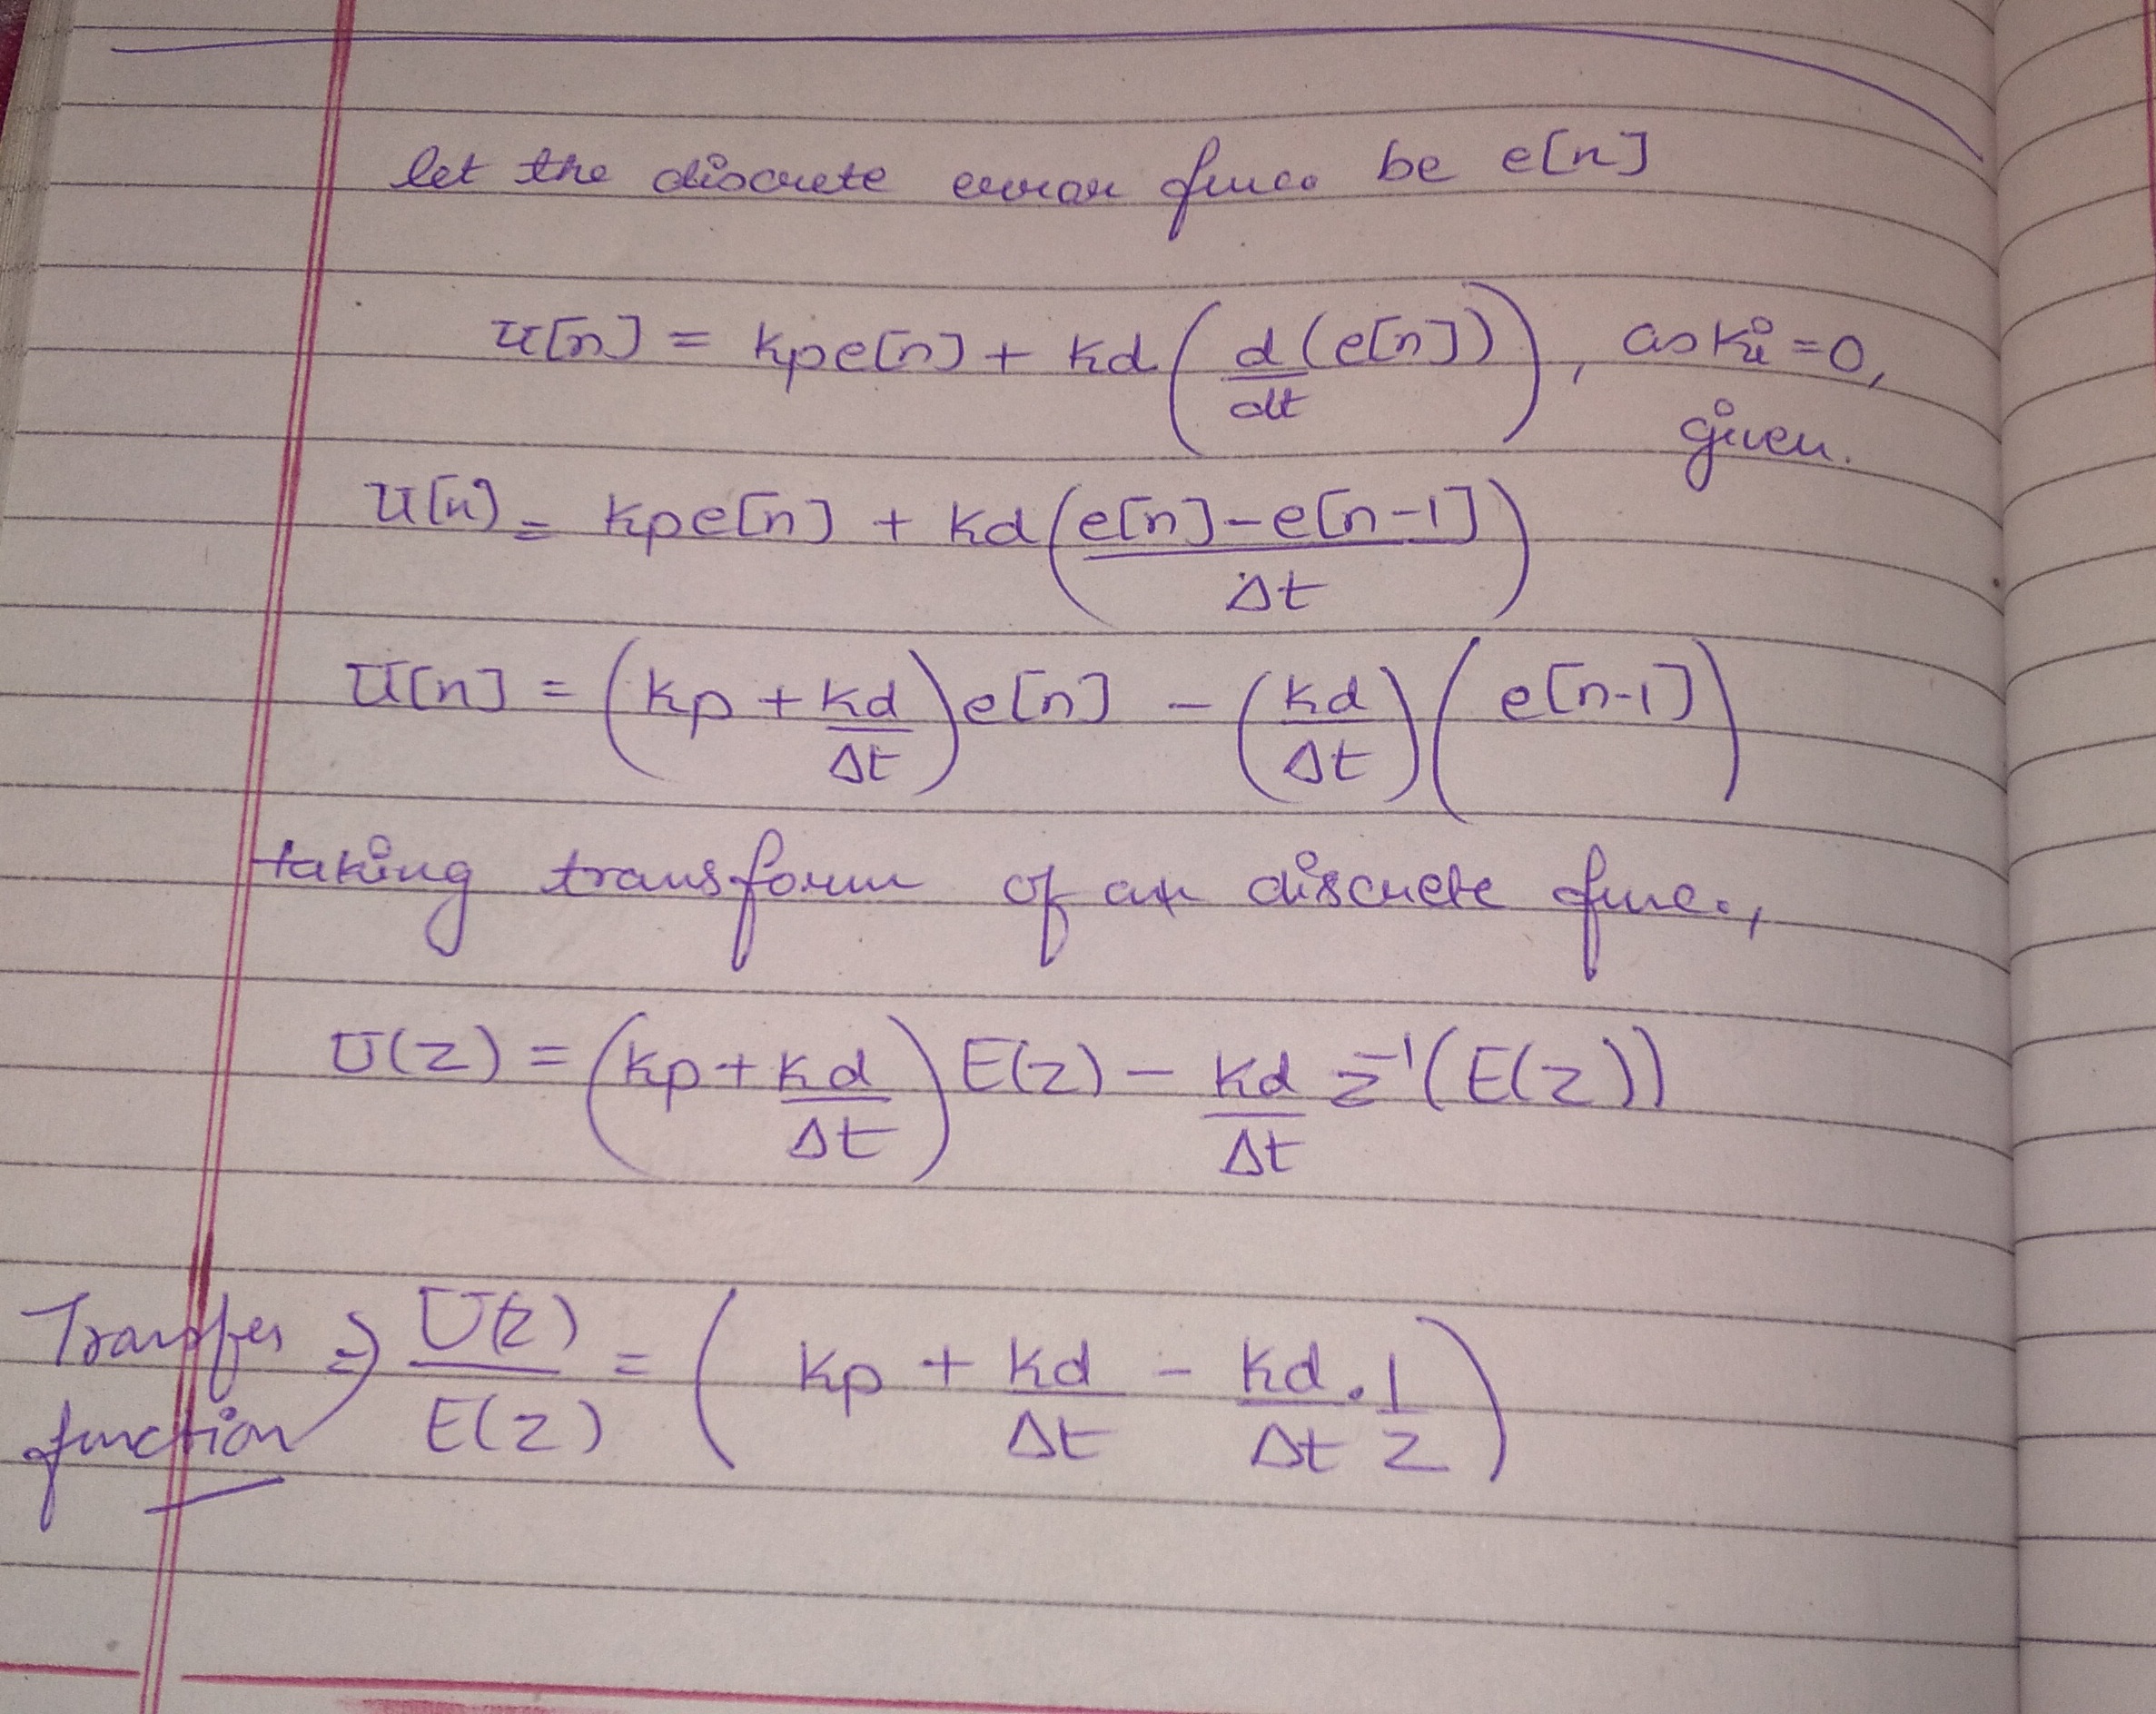 let the discrete error func. be e[n]
u[n] = kpe[n] + kd(d/dt(e[n])), as ki=0,
given.
u[n] = kpe[n] + kd(e[n]-e[n-1]/Δt)
u[n] = (kp + kd/Δt)e[n] - (kd/Δt)(e[n-1])
taking transform of an discrete func.,
U(z) = (kp+kd/Δt) E(z) - kd/Δt z⁻¹(E(z))
Transfer function ⇒ U(z)/E(z) = (kp + kd/Δt - kd/Δt . 1/z)